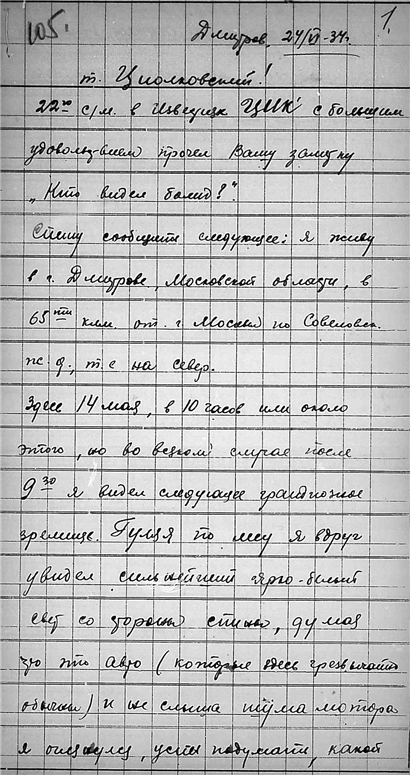 105.
1.
Дмитров, 24/VI-34г.
т. Циолковский!
22го с/м. в Известиях ЦИК с большим
удовольствием прочел Вашу заметку
„Кто видел болид?".
Спешу сообщить следующее: я живу
в г. Дмитрове, Московской области, в
65ти клм. от г Москвы по Савеловск.
ж.д., т.е на север.
Здесь 14 мая, в 10 часов или около
этого, но во всяком случае после
9 30 я видел следующее грандиозное
зрелище. Гуляя по лесу я вдруг
увидел сильнейший ярко-белый
свет со стороны спины, думая
что это авто (которые здесь
обычны) и не слыша шума мотора
я оглянулся, успев подумать, какой